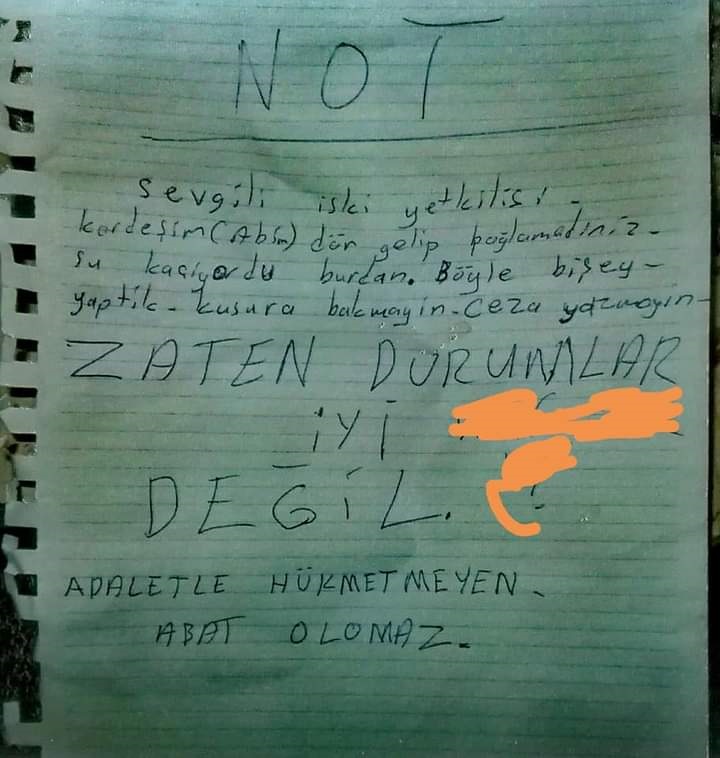 NOT
Sevgili iski yetkilisi -
kardeşim (Abim) dün gelip bağlamadınız -
su kaçıyordu burdan. Böyle bişey -
yaptik - kusura bakmayin - Ceza yazmayın -
ZATEN DURUMLAR
iYİ
DEĞİL. !
ADALETLE HÜKMETMEYEN -
ABAT OLOMAZ -